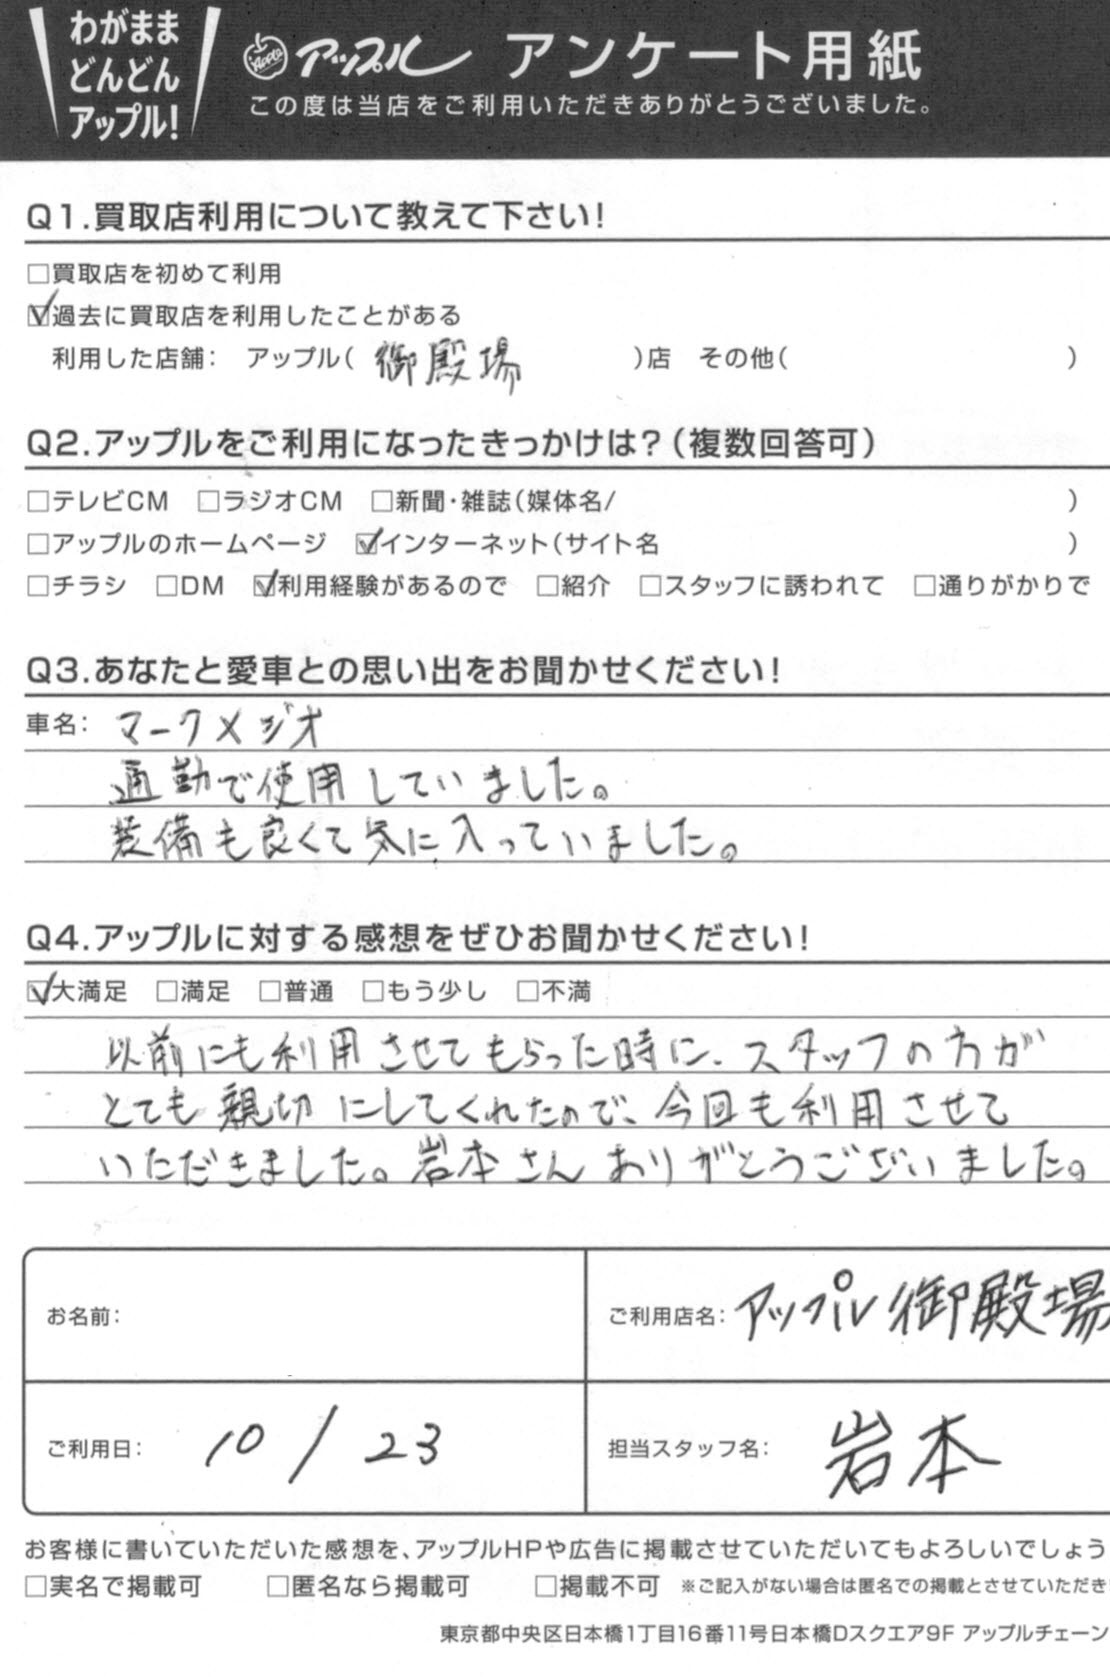 わがまま
どんどん
アップル!
APPLE アップル アンケート用紙
この度は当店をご利用いただきありがとうございました。
Q1.買取店利用について教えて下さい!
□買取店を初めて利用
☑過去に買取店を利用したことがある
利用した店舗: アップル( 御殿場 )店 その他( )
Q2.アップルをご利用になったきっかけは?(複数回答可)
□テレビCM □ラジオCM □新聞・雑誌(媒体名/ )
□アップルのホームページ ☑インターネット(サイト名 )
□チラシ □DM ☑利用経験があるので □紹介 □スタッフに誘われて □通りがかりで
Q3.あなたと愛車との思い出をお聞かせください!
車名: マークXジオ
通勤で使用していました。
装備も良くて気に入っていました。
Q4.アップルに対する感想をぜひお聞かせください!
☑大満足 □満足 □普通 □もう少し □不満
以前にも利用させてもらった時に、スタッフの方が
とても親切にしてくれたので、今回も利用させて
いただきました。岩本さんありがとうございました。
お名前:
ご利用店名: アップル御殿場
ご利用日: 10/23
担当スタッフ名: 岩本
お客様に書いていただいた感想を、アップルHPや広告に掲載させていただいてもよろしいでしょう
□実名で掲載可 □匿名なら掲載可 □掲載不可 ※ご記入がない場合は匿名での掲載とさせていただき
東京都中央区日本橋1丁目16番11号日本橋Dスクエア9F アップルチェーン